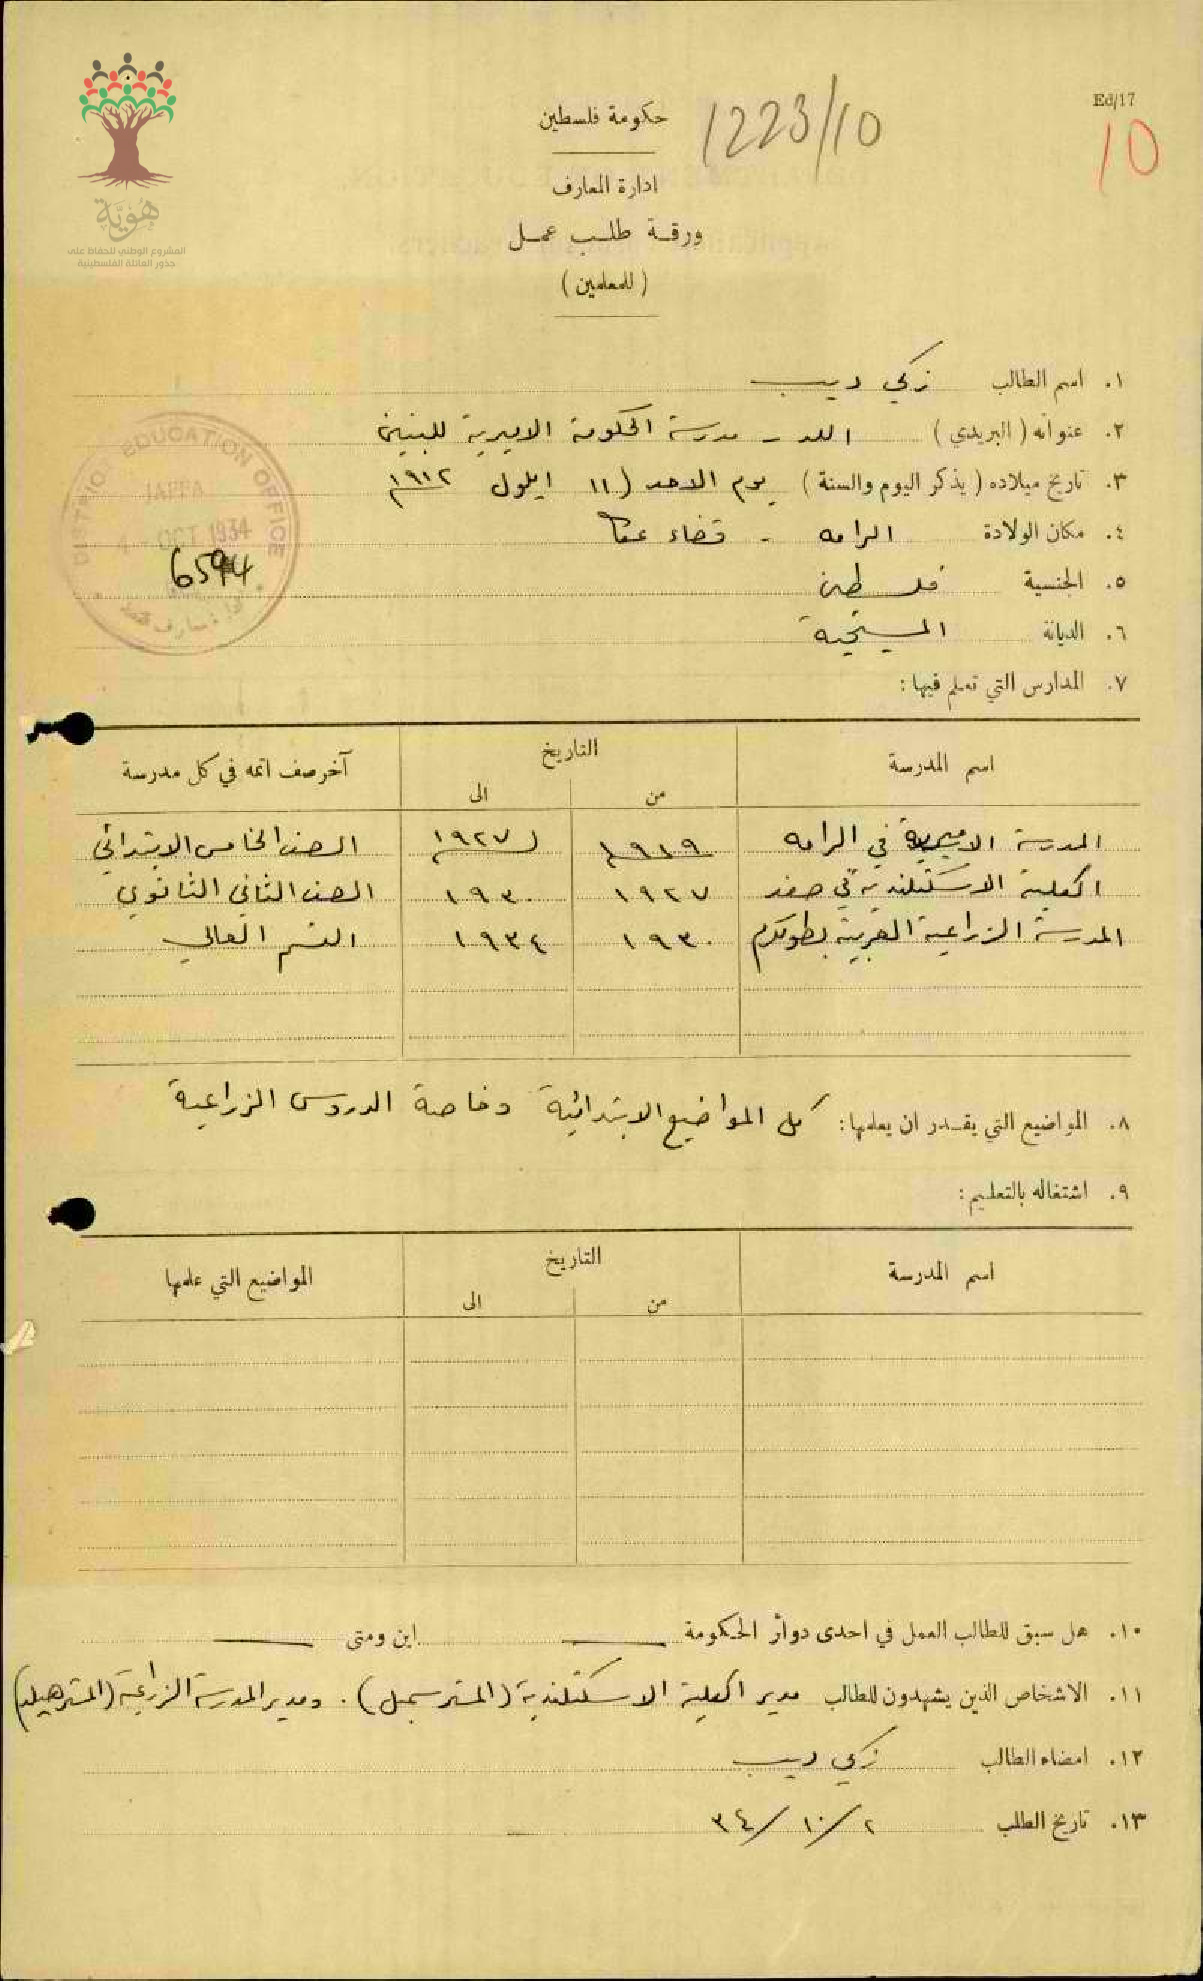 Ed/17
10
1223/10
هُوِيَّة
المشروع الوطني للحفاظ على
جذور العائلة الفلسطينية
حكومة فلسطين
ادارة المعارف
ورقة طلب عمل
(للمعلمين)
١. اسم الطالب زكي ديب
٢. عنوانه (البريدي) اللد - مدرسة الحكومة الاميرية للبنين
٣. تاريخ ميلاده (يذكر اليوم والسنة) يوم الاحد (١١ ايلول ١٩١٢م
٤. مكان الولادة الرامه - قضاء عكا
٥. الجنسية فلسطين
٦. الديانة المسيحية
DISTRICT EDUCATION OFFICE
JAFFA
4 - OCT 1934
6594
٧. المدارس التي تعلم فيها:
اسم المدرسة التاريخ آخر صف اتمه في كل مدرسة
من الى
المدرسة الاميرية في الرامه ١٩١٩م ١٩٢٧م الصف الخامس الابتدائي
الكلية الاسكتلندية في صفد ١٩٢٧ ١٩٣٠ الصف الثاني الثانوي
المدرسة الزراعية العربية بطولكرم ١٩٣٠ ١٩٣٤ القسم العالي
٨. المواضيع التي يقدر ان يعلمها: كل المواضيع الابتدائية وخاصة الدروس الزراعية
٩. اشتغاله بالتعليم:
اسم المدرسة التاريخ المواضيع التي علمها
من الى
١٠. هل سبق للطالب العمل في احدى دوائر الحكومة — اين ومتى —
١١. الاشخاص الذين يشهدون للطالب مدير الكلية الاسكتلندية (المستر سمبل). ومدير المدرسة الزراعية (المستر
١٢. امضاء الطالب زكي ديب
١٣. تاريخ الطلب ٢/١٠/٣٤